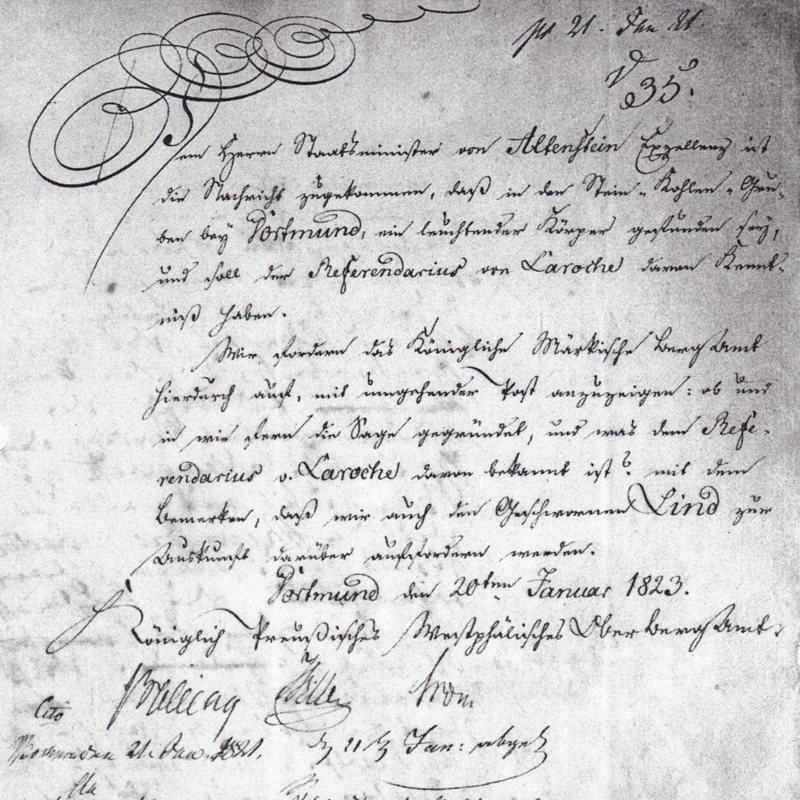 21. Jan 21
35.
Dem Herrn Staatsminister von Altenstein Exzellenz ist
die Nachricht zugekommen, daß in den Stein-Kohlen-Gru-
ben bey Dortmund, ein leuchtender Körper gefunden sey,
und soll der Referendarius von Laroche davon Kennt-
niß haben.
Wir fordern das Königliche Märkische Berg Amt
hierdurch auf, mit umgehender Post anzuzeigen: ob und
in wie fern die Sage gegründet, und was dem Refe-
rendarius v. Laroche davon bekannt ist? mit dem
Bemerken, daß wir auch den Geschwornen Lind zur
Auskunft darüber auffordern werden.
Dortmund den 20ten Januar 1823.
Königlich Preußisches Westphälisches Ober Berg Amt.
Bölling
Cito
21. Jan.
Jan: abges